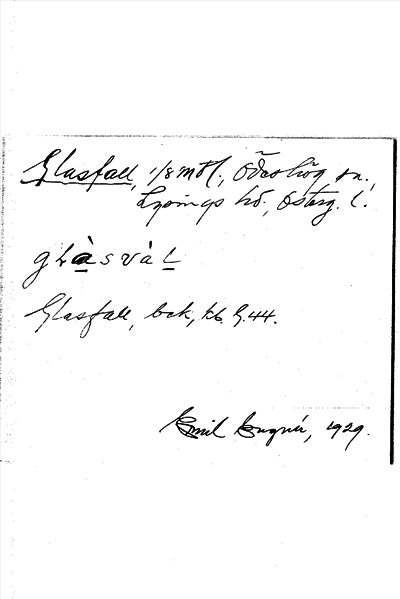 Glasfall, 1/8 mtl, Ödeshög sn.,
Lysings hd., Österg. l.
glàsvàl
Glasfall, bck, kb. G.44.
Emil Lugnér, 1929.